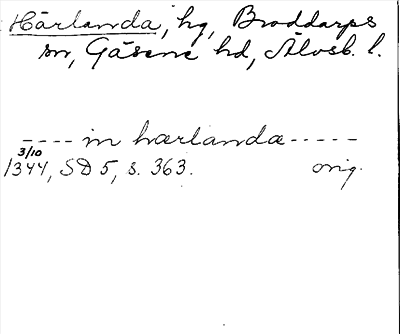 Härlanda, hg, Broddarps
sn, Gäsene hd, Älvsb. l.
---- in hærlanda -----
3/10
1344, SD 5, s. 363. orig.